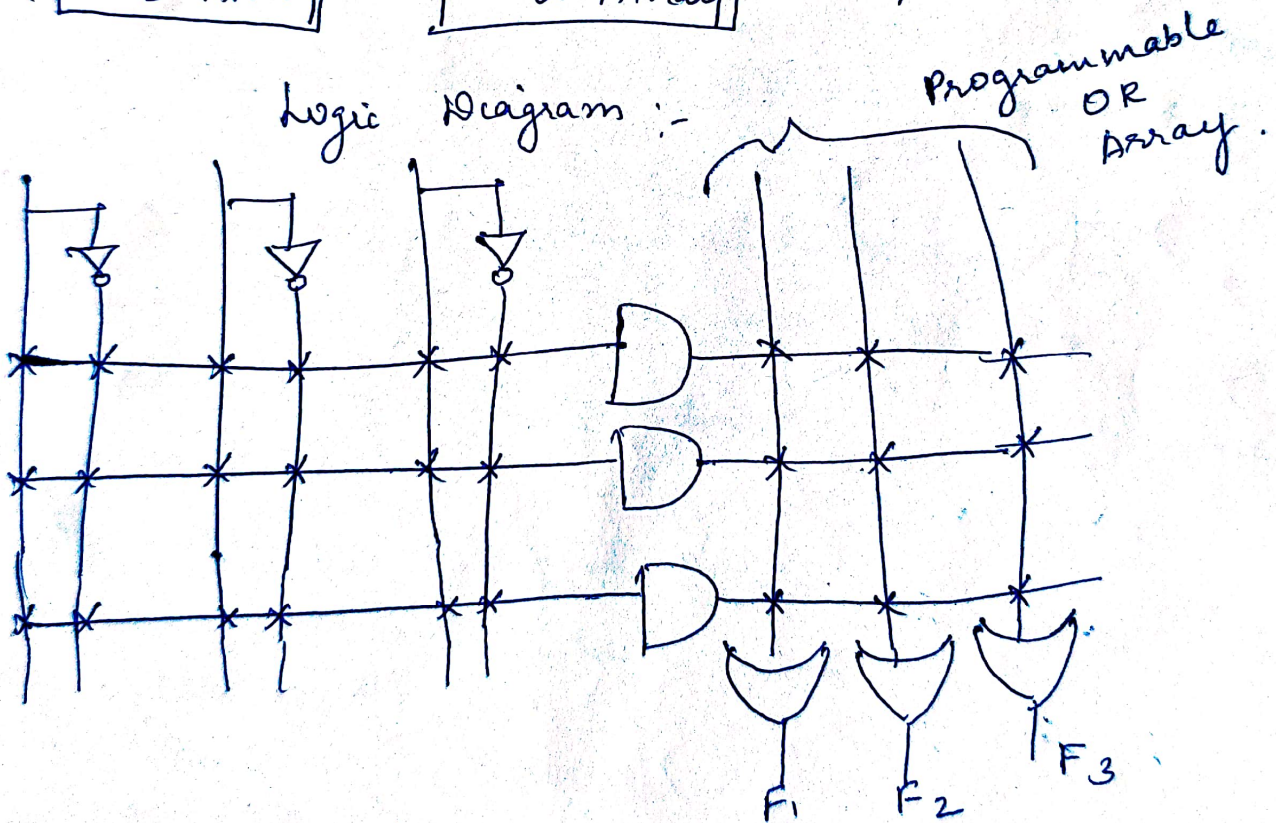 Logic Diagram :-
Programmable
OR
Array.
F1
F2
F3